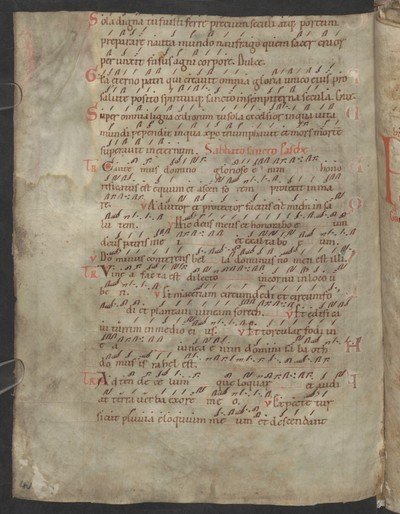 Sola digna tu fuisti ferre precium seculi atq; portum
preparare nauta mundo naufrago quem sacer cruor
per unxit fusus agni corpore. Dulce.
Gloria eterno patri qui creauit omnia gloria unico eius pro
salute posito spirituiq; sancto in sempiterna secula. Crux.
Super omnia ligna cedrorum tu sola excelsior in qua uita
mundi pependit in qua xpc triumphauit et mors mortem
superauit in eternum. Sabbato sancto Pasche
TR Cante mus domino gloriose e nim hono
rificatus est equum et ascen so rem proiecit in ma
re. V Adiutor et protector factus est michi in sa
lu tem. Hic deus meus et honorabo e um
deus patris me i et exalta bo e um.
V Do minus conterens bel la dominus no men est illi.
TR Vine a facta est dilecto in cornu in loco u
be ri. V Et maceriam circumdedit et circumfo
dit et plantauit uineam sorech. V Et edifica
uit turrim in medio ei us. V Et torcular fodit in
e a uinea enim domini sa ba oth
do mus israhel est.
TR Adtende ce lum et loquar et audi
at terra uerba ex ore me o. V Expecte tur
sicut pluuia eloquium me um et descendant